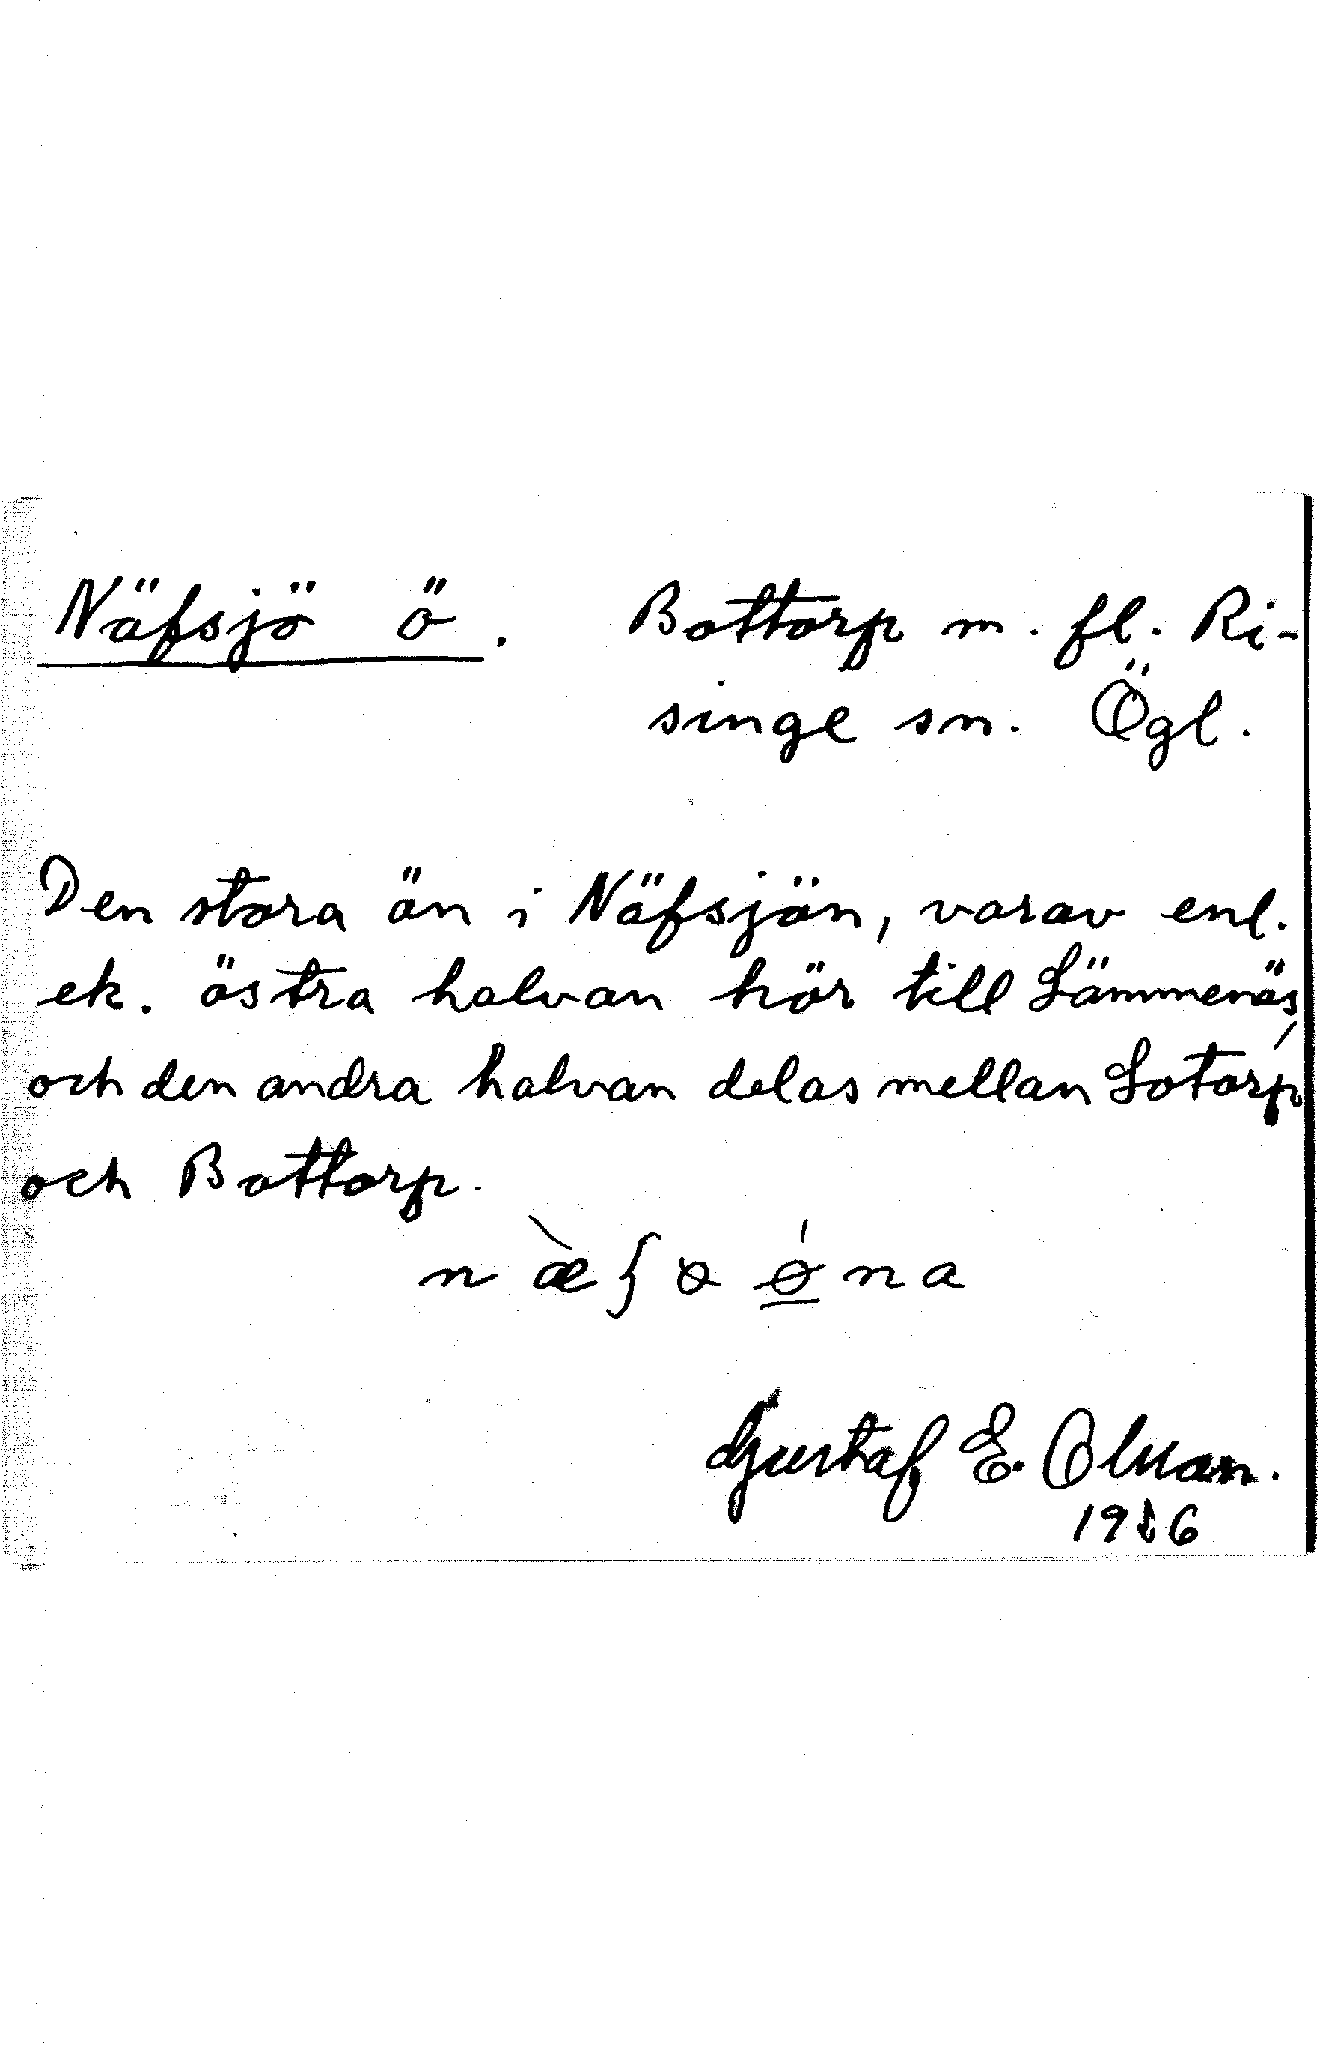 Näfsjö ö. Bottorp m. fl. Ri-
singe sn. Ögl.
Den stora ön i Näfsjön, varav enl.
ek. östra halvan hör till Lämmenäs,
och den andra halvan delas mellan Lotorp
och Bottorp.
Gustaf E. Olsson.